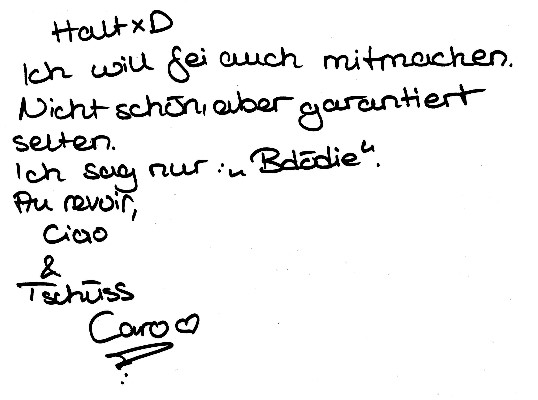 Halt xD
Ich will fei auch mitmachen.
Nicht schön, aber garantiert
selten.
Ich sag nur: „Bdödie“.
Au revoir,
Ciao
&
Tschüss
Caro ♡